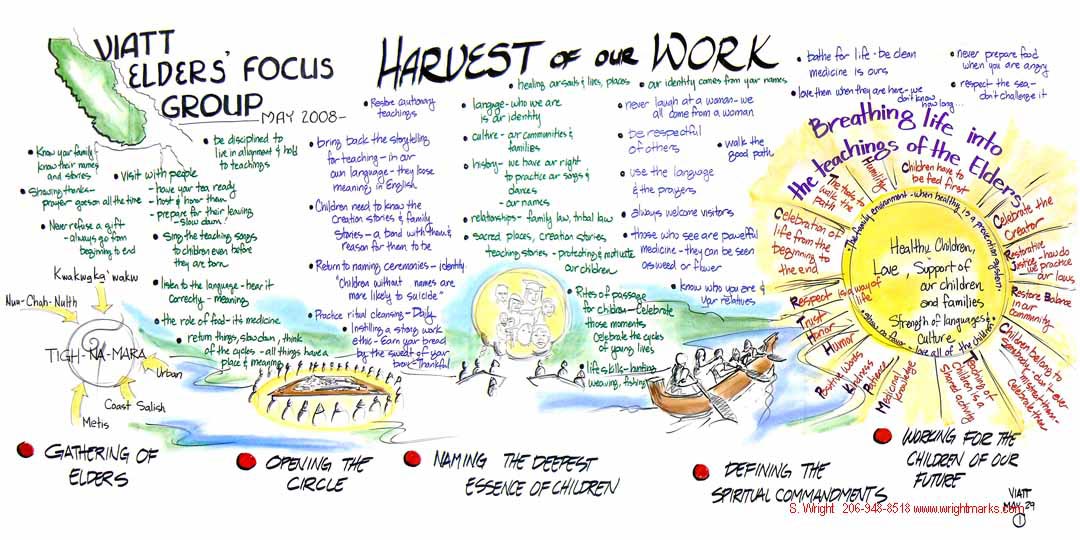 VIATT
ELDERS' FOCUS
GROUP
MAY 2008-
HARVEST OF OUR WORK
• Know your family
know their names
and stories
• Showing thanks-
prayer- goes on all the time
• Never refuse a gift
- always go from
beginning to end
• be disciplined to
live in alignment & hold
to teachings
• Visit with people
- have your tea ready
- host & honor them
- prepare for their leaving
- slow down!
• Sing the teaching songs
to children even before
they are born
• listen to the language - hear it
correctly - meaning
• the role of food - it's medicine
• return things, slow down, think
of the cycles - all things have a
place & meaning
Kwakwaka'wakw
Nuu-Chah-Nulth
TIGH-NA-MARA
Urban
Coast Salish
Metis
• Restore cautionary
teachings
• bring back the storytelling
for teaching - in our
own language - they lose
meaning in English
• Children need to know the
Creation stories & family
Stories - a bond with them &
reason for them to be
• Return to naming ceremonies - identity
"Children without names are
more likely to suicide"
• Practice ritual cleansing - Daily
• Instilling a strong work
ethic - Earn your bread
by the sweat of your
brow - Thankful
• healing our souls & lives, places
• language - who we are
is our identity
• culture - our communities &
families
• history - we have our right
to practice our songs &
dances
- our names
• relationships - family law, tribal law
• sacred places, creation stories
teaching stories - protecting & motivate
our children
• Rites of passage
for children - Celebrate
those moments
Celebrate the cycles
of young lives
• life skills - hunting
weaving, fishing
• our identity comes from your names
• never laugh at a woman - we
all come from a woman
• be respectful
of others
• walk the
good path
• use the language
& the prayers
• always welcome visitors
• those who see are powerful
medicine - they can be seen
as weed or flower
• know who you are &
your relatives
• bathe for life - be clean
medicine is ours
• love them when they are here - we
don't know
how long...
• never prepare food
when you are angry
• respect the sea -
don't challenge it
Breathing life into
the teachings of the Elders
Humility
The tools to
walk the
path
Celebration of
life from the
beginning to
the end
Respect is a way of
life
Trust
Honor
Humor
Positive Words
Kindness
Patience
Medicine
knowledge
Teaching of
Children is a
Shared activity
Children belong to
Somebody- don't ever
mistreat them-
Celebrate them
Restore Balance
in our
community
Restorative
Justice - how do
we practice
our laws
Celebrate the
Creator
Children have to
be fed first
The family environment - when healthy, is a prevention system
love all of the children
Healthy Children,
Love, Support of
our children
and families
Strength of languages &
Culture
GATHERING OF
ELDERS
OPENING THE
CIRCLE
NAMING THE DEEPEST
ESSENCE OF CHILDREN
DEFINING THE
SPIRITUAL COMMANDMENTS
WORKING FOR THE
CHILDREN OF OUR
FUTURE
VIATT
MAY 29
1
S. Wright 206-948-8518 www.wrightmarks.com